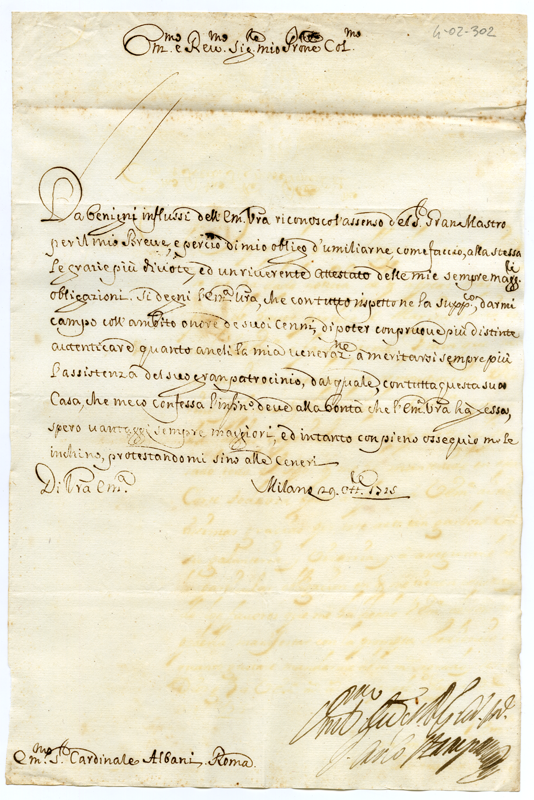 4-02-302
Em.mo e Rev.mo Sig.re mio Prone Col.mo
Da benigni influssi dell'Em. Vra riconosco l'assenso del S. Gran Mastro
per il mio Breve, e perciò di mio obligo d'umiliarne come faccio, alla stessa
le grazie più divote, ed un riverente attestato delle mie sempre magg.ri
obligazioni. Si degni l'Em.a Vra, che con tutto rispetto ne la supp.co, darmi
campo coll'ambito onore de suoi Cenni, di poter con pruove più distinte
autenticare quanto aneli la mia veneraz.ne a meritarsi sempre più
l'assistenza del suo gran patrocinio, dal quale, con tutta questa sua
Casa, che meco confessa l'infinito deve alla bontà che l'Em. Vra hà per essa,
spero vantaggi sempre maggiori, ed intanto con pieno ossequio me le
inchino, protestandomi sino alle Ceneri
Di Vra Em.a Milano 29. Ott.re 1725
Em.mo S. Cardinale Albani. Roma.